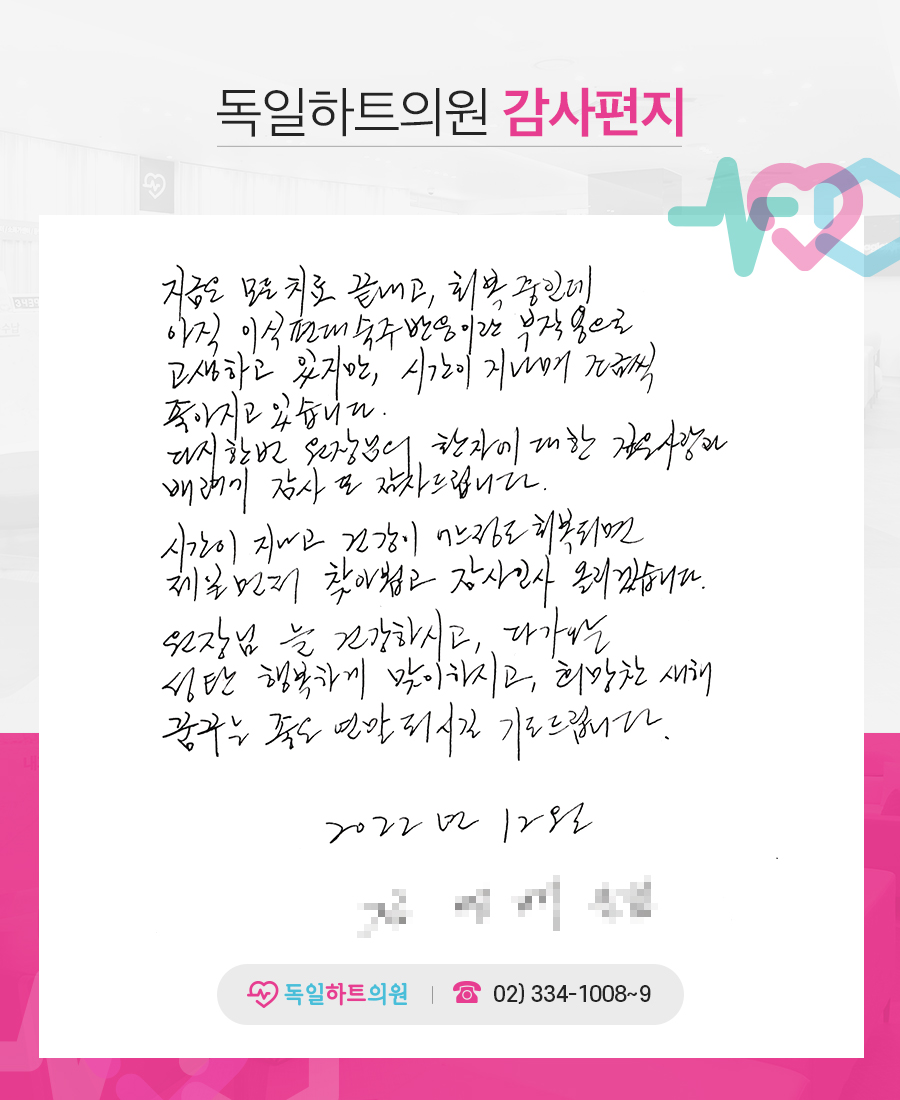 독일하트의원 감사편지
지금은 모든 치료 끝내고, 회복 중인데
아직 이식편대숙주반응이란 부작용으로
고생하고 있지만, 시간이 지나매 조금씩
좋아지고 있습니다.
다시한번 원장님의 환자에 대한 사랑과
배려에 감사 또 감사드립니다.
시간이 지나고 건강이 어느정도 회복되면
제일먼저 찾아뵙고 감사인사 올리겠습니다.
원장님 늘 건강하시고, 다가오는
성탄 행복하게 맞이하시고, 희망찬 새해
꿈꾸는 좋은 연말 되시길 기도드립니다.
2022년 12월
독일하트의원 02) 334-1008~9